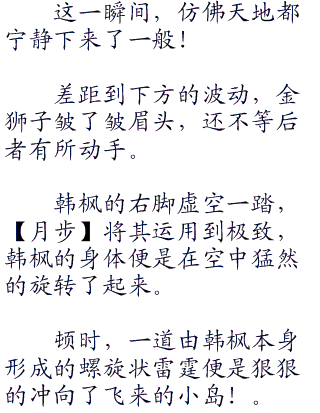 这一瞬间，仿佛天地都
宁静下来了一般！
差距到下方的波动，金
狮子皱了皱眉头，还不等后
者有所动手。
韩枫的右脚虚空一踏，
【月步】将其运用到极致，
韩枫的身体便是在空中猛然
的旋转了起来。
顿时，一道由韩枫本身
形成的螺旋状雷霆便是狠狠
的冲向了飞来的小岛！。